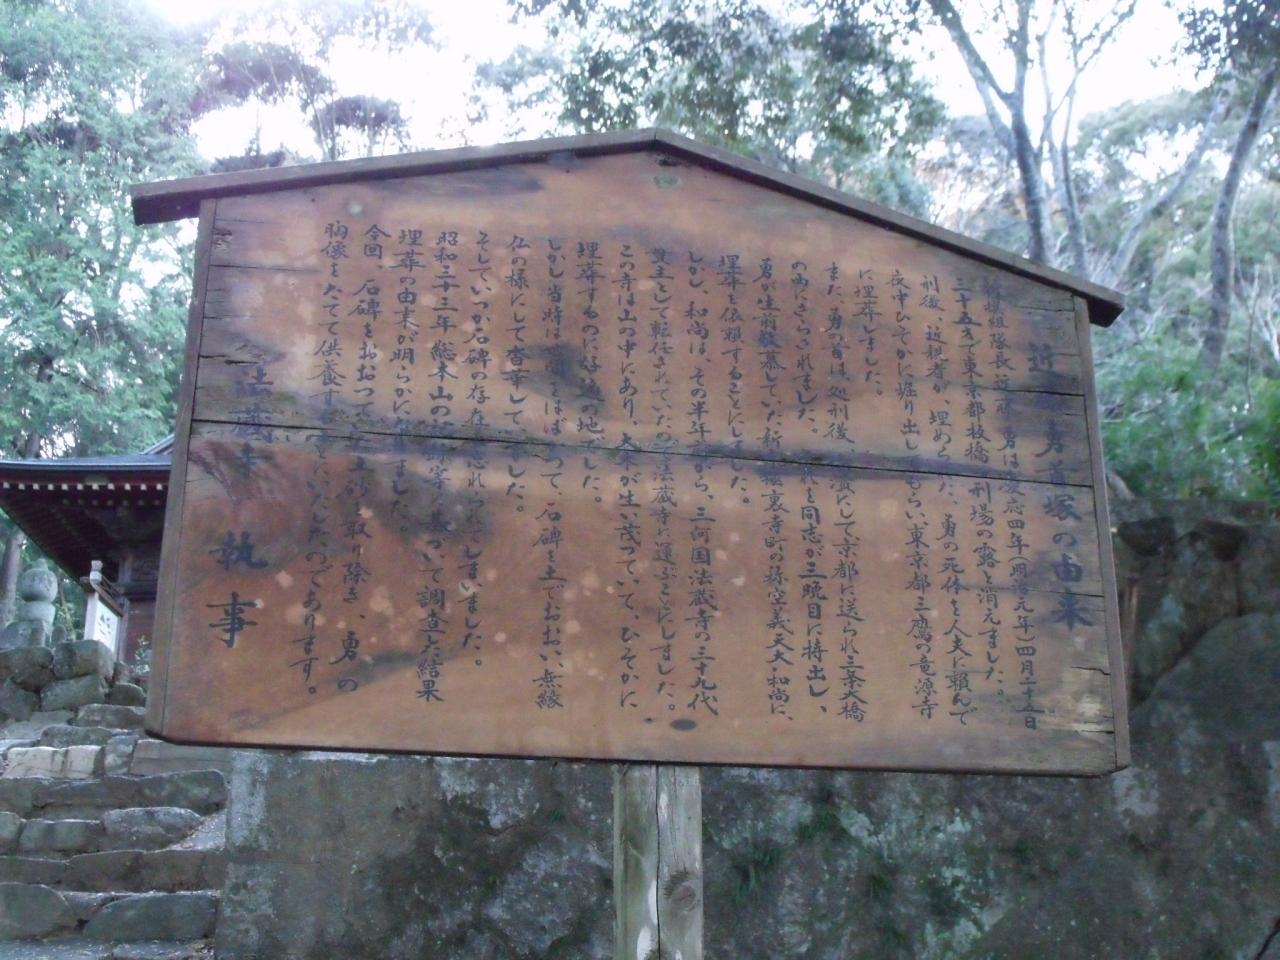 近 勇首塚の由来
撰組隊長近藤勇は慶応四年(明治元年)四月二十五日
三十五才で東京都板橋刑場の露と消えました。
刑後、近親者が、埋められた、勇の死体を人夫に頼んで
夜中ひそかに堀り出してもらい、東京都三鷹の竜源寺
に埋葬しました。
また、勇の首は処刑後、塩漬にして京都に送られ三条大橋
の西にさらされました。これを同志が三晩目に持出し、
勇が生前敬慕していた新京極裏寺町の称空義天大和尚に、
埋葬を依頼することにしました。
しかし、和尚は、その半年前から、三河国法蔵寺の三十九代
貫主として転任されていたので法蔵寺に運ぶことにしました。
この寺は山の中にあり、大木が生い茂っていて、ひそかに
埋葬するのに好適の地でした。
しかし当時は世間をはばかって、石碑を土でおおい、無縁
仏の様にして埋葬していました。
そしていつか石碑の存在も忘れられてしまいました。
昭和三十三年総本山の に基づいて調査した結果
埋葬の由来が明らかになりました。
今回、石碑をおおって 土砂を取り除き、勇の
胸像をたてて供養することにいたしたのであります。
法蔵寺 執事